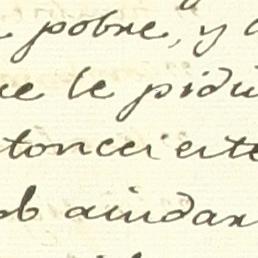 pobre, y
le pidi
tonces este
ob aiudar